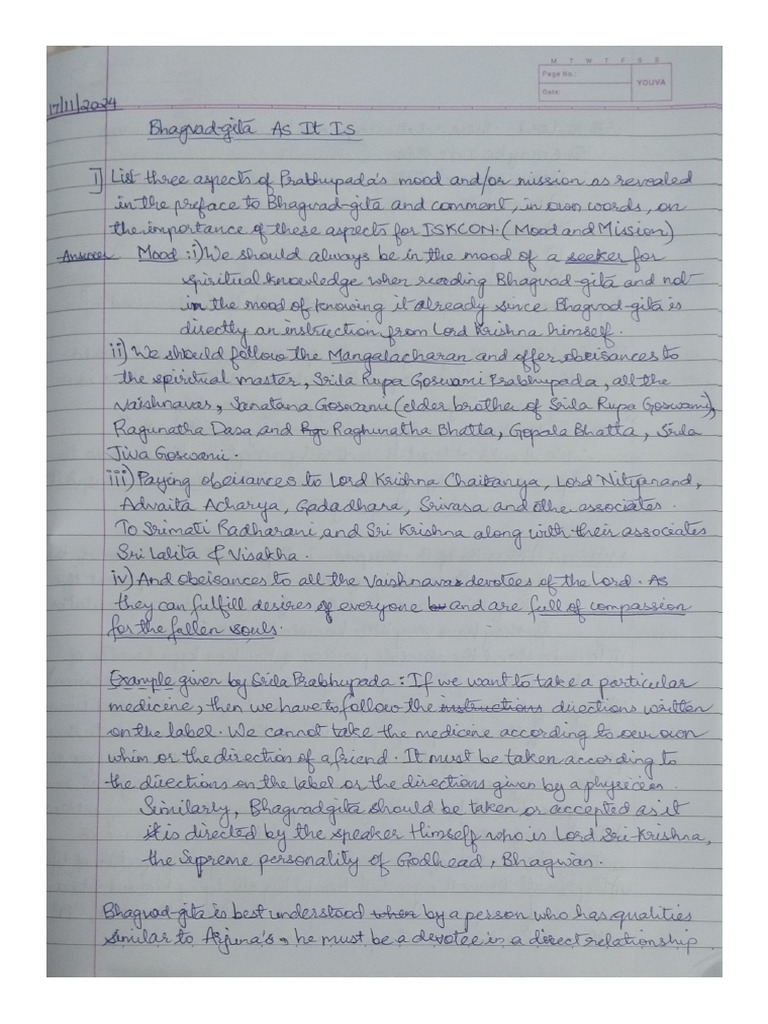 M T W T F S S
Page No.:
YOUVA
Date:
17/11/2024
Bhagvad-gitā As It Is
1] List three aspects of Prabhupada's mood and/or mission as revealed
in the preface to Bhagvad-gita and comment, in own words, on
the importance of these aspects for ISKCON. (Mood and Mission)
Answer Mood : i) We should always be in the mood of a seeker for
spiritual knowledge when reading Bhagvad-gita and not
in the mood of knowing it already since Bhagvad-gita is
directly an instruction from Lord Krishna himself.
ii) We should follow the Mangalacharan and offer obeisances to
the spiritual master, Srila Rupa Goswami Prabhupada, all the
Vaishnavas, Sanatana Goswami (elder brother of Srila Rupa Goswami),
Ragunatha Dasa and Rgr Raghunatha Bhatta, Gopala Bhatta, Srila
Jiva Goswami.
iii) Paying obeisances to Lord Krishna Chaitanya, Lord Nityanand,
Advaita Acharya, Gadadhara, Srivasa and othe associates.
To Srimati Radharani and Sri Krishna along with their associates
Sri Lalita & Visakha.
iv) And obeisances to all the Vaishnavas devotees of the Lord. As
they can fulfill desires of everyone and are full of compassion
for the fallen souls.
Example given by Srila Prabhupada : If we want to take a particular
medicine, then we have to follow the instructions directions written
on the label. We cannot take the medicine according to our own
whim or the direction of a friend. It must be taken according to
the directions on the label or the directions given by a physician.
Similarly, Bhagvadgita should be taken or accepted as it
it is directed by the speaker Himself who is Lord Sri Krishna,
the Supreme personality of Godhead, Bhagwan.
Bhagvad-gita is best understood when by a person who has qualities
similar to Arjuna's, he must be a devotee in a direct relationship